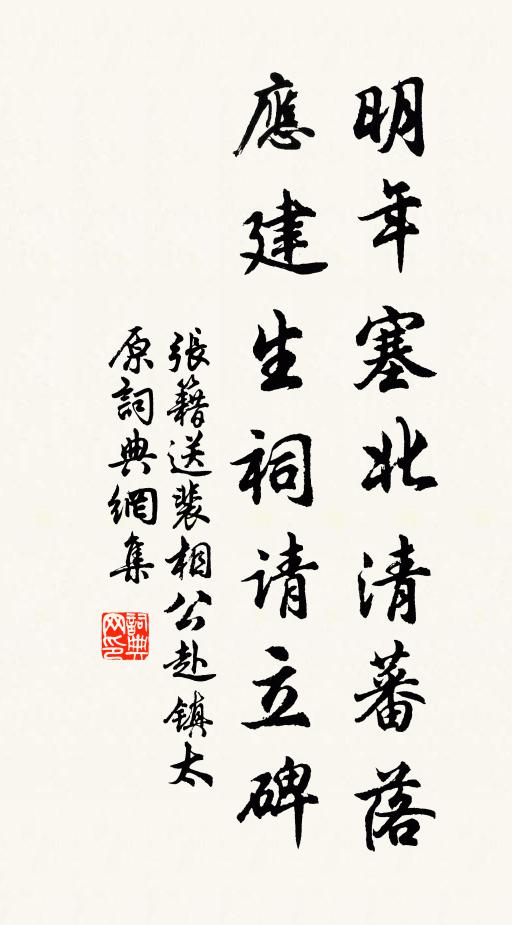 明年塞北清蕃落
應建生祠请立碑
張籍送裴相公赴鎮太
原詞典網集
詞典
网印